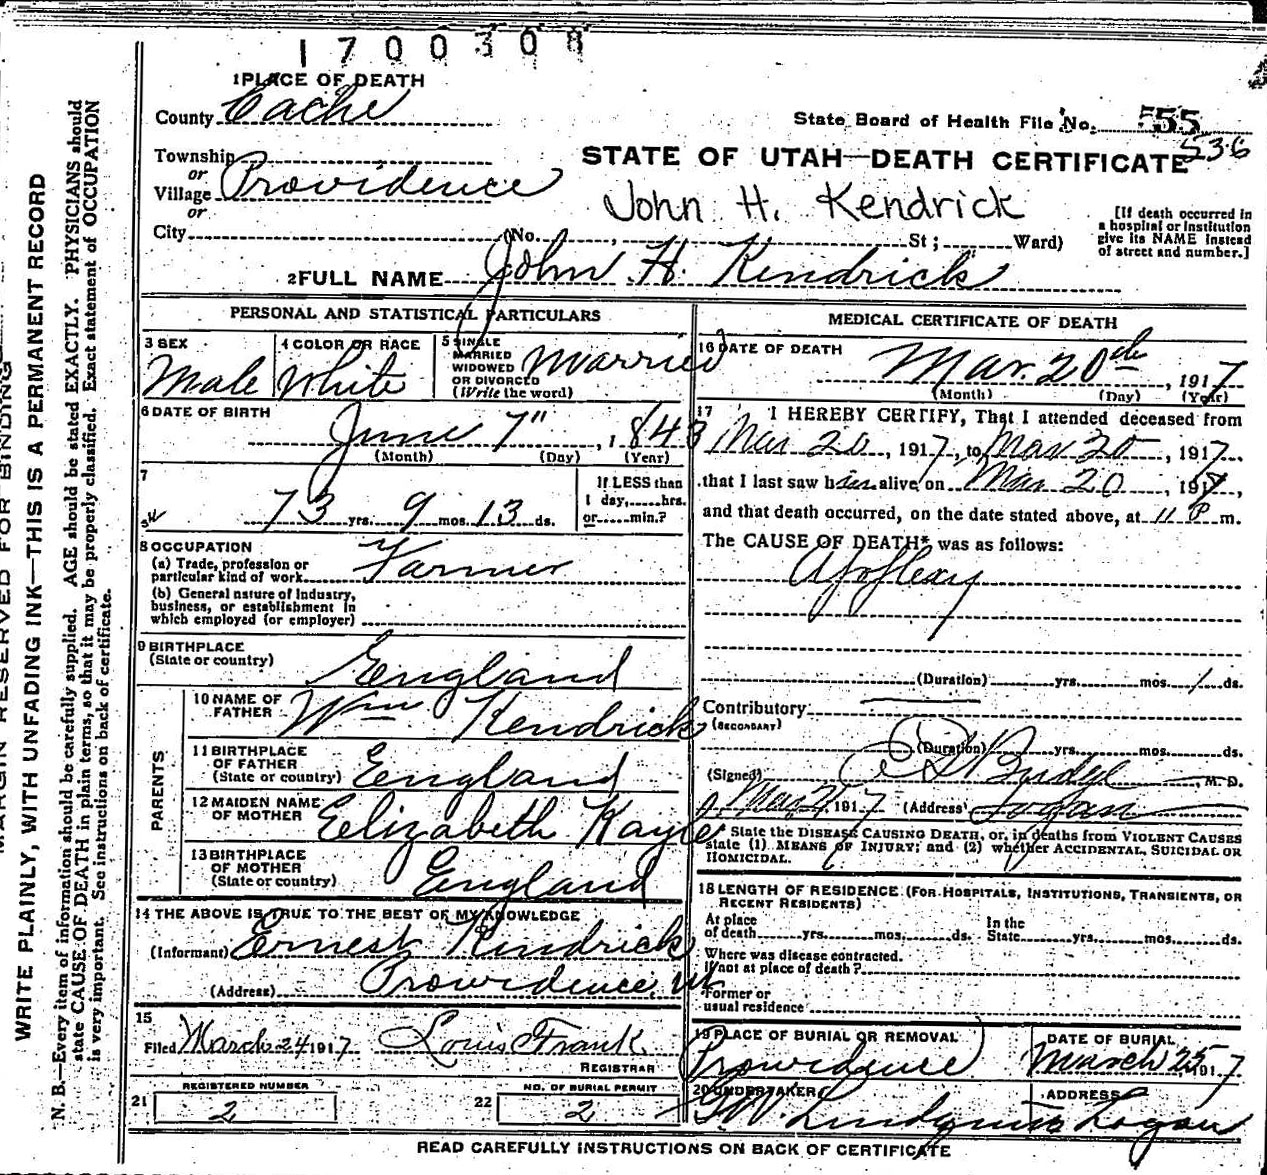 1700308
1 PLACE OF DEATH
County Cache
State Board of Health File No. 555
536
Township
or
Village Providence
or
STATE OF UTAH—DEATH CERTIFICATE
John H. Kendrick
[If death occurred in
a hospital or institution
give its NAME instead
of street and number.]
City (No. , St ; Ward)
2 FULL NAME John H. Kendrick
PERSONAL AND STATISTICAL PARTICULARS
3 SEX
Male
4 COLOR OR RACE
White
5 SINGLE
MARRIED
WIDOWED
OR DIVORCED
(Write the word)
Married
6 DATE OF BIRTH
June 7" , 1843
(Month) (Day) (Year)
7
73 yrs. 9 mos. 13 ds.
If LESS than
1 day, hrs.
or min.?
8 OCCUPATION
(a) Trade, profession or
particular kind of work Farmer
(b) General nature of Industry,
business, or establishment in
which employed (or employer)
9 BIRTHPLACE
(State or country) England
PARENTS
10 NAME OF
FATHER Wm Kendrick
11 BIRTHPLACE
OF FATHER
(State or country) England
12 MAIDEN NAME
OF MOTHER Elizabeth Kayle
13 BIRTHPLACE
OF MOTHER
(State or country) England
14 THE ABOVE IS TRUE TO THE BEST OF MY KNOWLEDGE
(Informant) Ernest Kendrick
(Address) Providence, Ut
15
Filed March 24 1917 Louis Frank
REGISTRAR
REGISTERED NUMBER
21 2
NO. OF BURIAL PERMIT
22 2
MEDICAL CERTIFICATE OF DEATH
16 DATE OF DEATH
Mar. 20th , 1917
(Month) (Day) (Year)
17 I HEREBY CERTIFY, That I attended deceased from
Mar 20 , 1917, to Mar 20 , 1917.
that I last saw him alive on Mar 20 , 1917,
and that death occurred, on the date stated above, at 11 P m.
The CAUSE OF DEATH* was as follows:
Apoplexy
(Duration) yrs. mos. 1 ds.
Contributory
(SECONDARY)
(Duration) yrs. mos. ds.
(Signed) Budge M. D.
Mar 21, 1917 (Address) Logan
State the DISEASE CAUSING DEATH, or, in deaths from VIOLENT CAUSES
state (1) MEANS OF INJURY; and (2) whether ACCIDENTAL, SUICIDAL OR
HOMICIDAL.
18 LENGTH OF RESIDENCE (FOR HOSPITALS, INSTITUTIONS, TRANSIENTS, OR
RECENT RESIDENTS)
At place
of death yrs. mos. ds.
In the
State yrs. mos. ds.
Where was disease contracted.
If not at place of death?
Former or
usual residence
19 PLACE OF BURIAL OR REMOVAL
Providence
DATE OF BURIAL
March 25 1917
20 UNDERTAKER
Lindquist
ADDRESS
Logan
READ CAREFULLY INSTRUCTIONS ON BACK OF CERTIFICATE
MARGIN RESERVED FOR BINDING
WRITE PLAINLY, WITH UNFADING INK—THIS IS A PERMANENT RECORD
N. B.—Every item of information should be carefully supplied. AGE should be stated EXACTLY. PHYSICIANS should
state CAUSE OF DEATH in plain terms, so that it may be properly classified. Exact statement of OCCUPATION
is very important. See instructions on back of certificate.